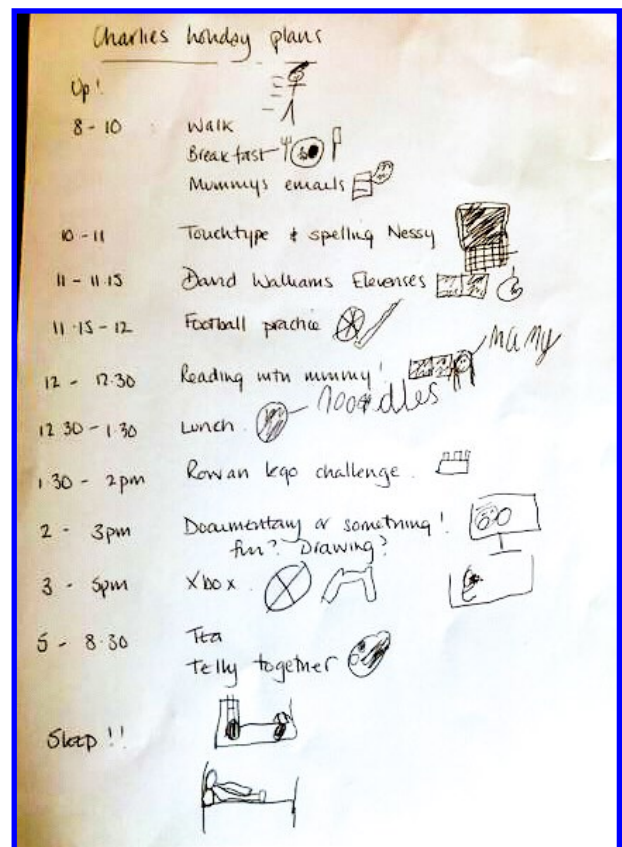 Charlies holiday plans
Up!
8 - 10 Walk
Breakfast
Mummys emails
10 - 11 Touchtype & spelling Nessy
11 - 11.15 David Walliams Elevenses
11.15 - 12 Football practice
mamy
12 - 12.30 Reading with mummy!
noodles
12 30 - 1.30 Lunch.
1.30 - 2pm Rowan lego challenge.
2 - 3pm Documentary or something!
fun? Drawing?
3 - 5pm Xbox.
5 - 8.30 Tea
Telly together
Sleep!!